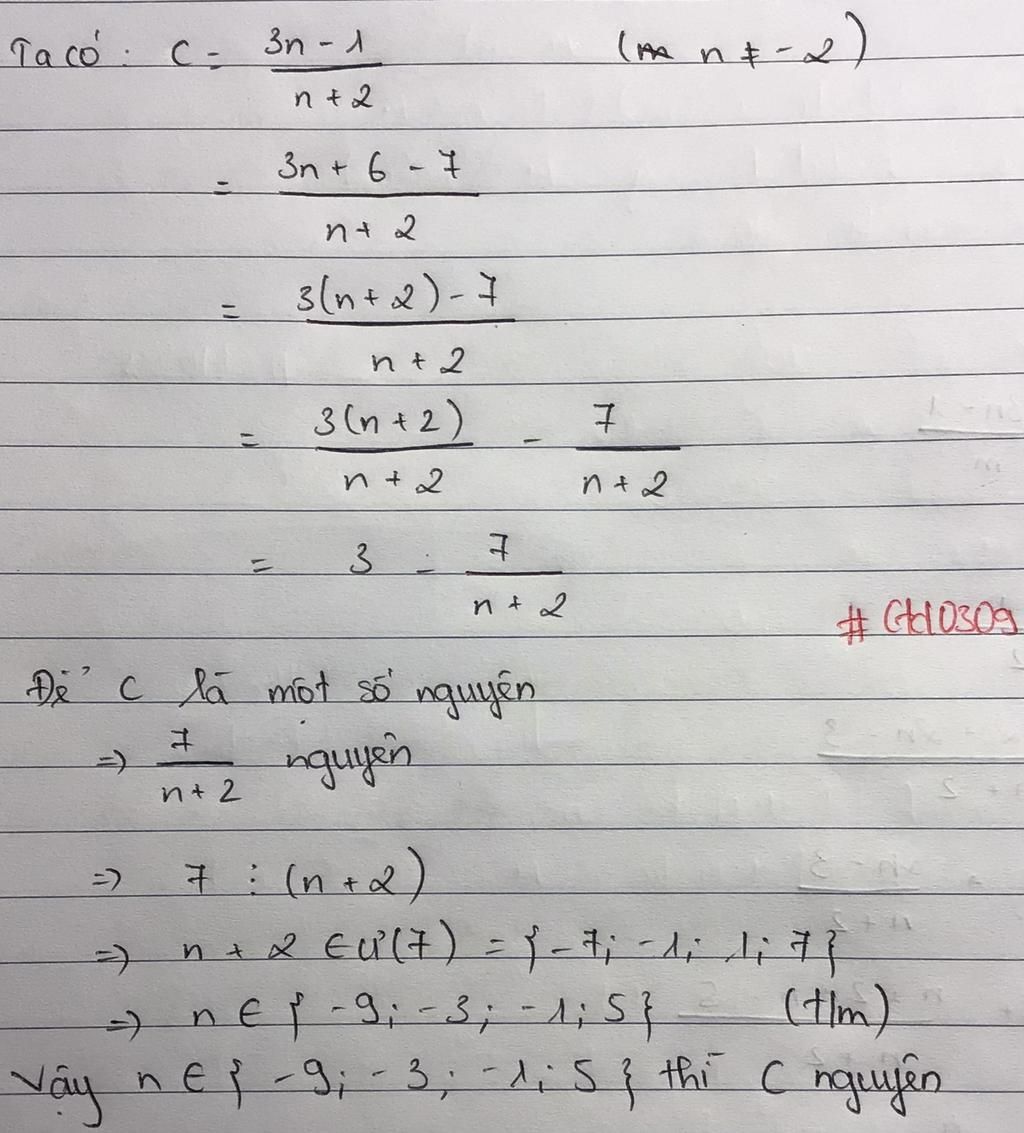 Ta có: C = \frac{3n - 1}{n + 2} (n ≠ -2)
= \frac{3n + 6 - 7}{n + 2}
= \frac{3(n + 2) - 7}{n + 2}
= \frac{3(n + 2)}{n + 2} - \frac{7}{n + 2}
= 3 - \frac{7}{n + 2}
# Gtd0309
Để C là một số nguyên
=> \frac{7}{n + 2} nguyên
=> 7 ⋮ (n + 2)
=> n + 2 ∈ Ư(7) = {-7; -1; 1; 7}
=> n ∈ {-9; -3; -1; 5} (t/m)
Vậy n ∈ {-9; -3; -1; 5} thì C nguyên